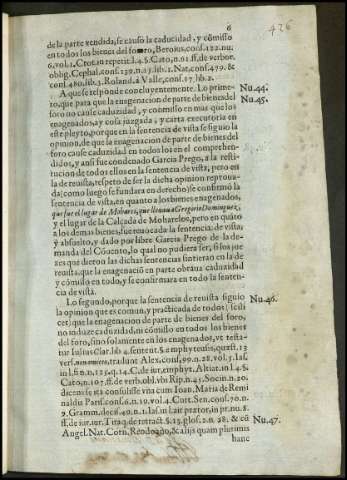 6
426
de la parte vendida, se causò la caducidad, y comisso
en todos los bienes del foro, Beroius cons. 122. nu.
6. vol. 1. Crot. in repetit. l. 4. §. Cato, n. 91. ff. de verbor.
oblig. Cephal. cons. 129. n. 15. lib. 1. Nat. cons. 479. &
cons. 480. lib. 3. Roland. à Valle, cons. 17. lib. 2.
A que se responde concluyentemente. Lo prime- Nu. 44.
ro, que para que la enagenacion de parte de bienes del Nu. 45.
foro no cause caduzidad, y commisso en mas que los
enagenados, ay cosa juzgada, y carta executoria en
este pleyto, porque en la sentencia de vista se siguio la
opinion, de que la enagenacion de parte de bienes del
foro cause caduzidad en todos los en el comprehen-
didos, y ansi fue condenado Garcia Prego, a la resti-
tucion de todos ellos en la sentencia de vista, pero en
la de reuista, respeto de ser la dicha opinion reproua-
da; como luego se fundara en derecho) se confirmò la
sentencia de vista, en quanto a los bienes enagenados,
que fue el lugar de Mobares, que lleuaua Gregorio Dominguez,
y el lugar de la Calçada de Mobarelos, pero en quãto
a los demas bienes, fue reuocada la sentencia; de vista,
y absuelto, y dado por libre Garcia Prego de la de-
manda del Cõuento, lo qual no pudiera ser, si los jue
zes que dieron las dichas sentencias sintieran en la de
reuista, que la enagenaciõ en parte obraua caduzidad
y comisso en todo, y se confirmara en todo la senten-
cia de vista.
Lo segundo, porque la sentencia de reuista siguio Nu. 46.
la opinion que es comun, y practicada de todos; scili
cet; que la enagenacion de parte de bienes del foro,
no induze caduzidad, ni comisso en todos los bienes
del foro, sino solamente en los enagenados, vt testa-
tur Iulius Clar. lib. 4. sentent. §. emphyteusis, quæst. 13
vers. non omitto, traduut Alex. cons. 99. n. 28. vol. 5. Ias.
in l. si n. 123. q. 14. C. de iur. emphyt. Altiat. in l. 4. §.
Cato, n. 107. ff. de verb. obl. vbi Rip. n. 45. Socin. n. 20.
dicens se ita consilisse vna cum Ioan. Maria de Remi
naldu Paris. cons. 6. n. 19. vol. 4. Curt. Sen. cons. 70. n.
9. Gramm. decis. 40. n. 1. Ias. in l. ait prætor, in pr. nu. 8.
ff. de iur. iur. Tiraq. de retract. §. 23. glos. 2. n. 28; & cũ Nu. 47.
Angel. Nat. Corn. Rodogno, & alijs quam plurimis
hanc